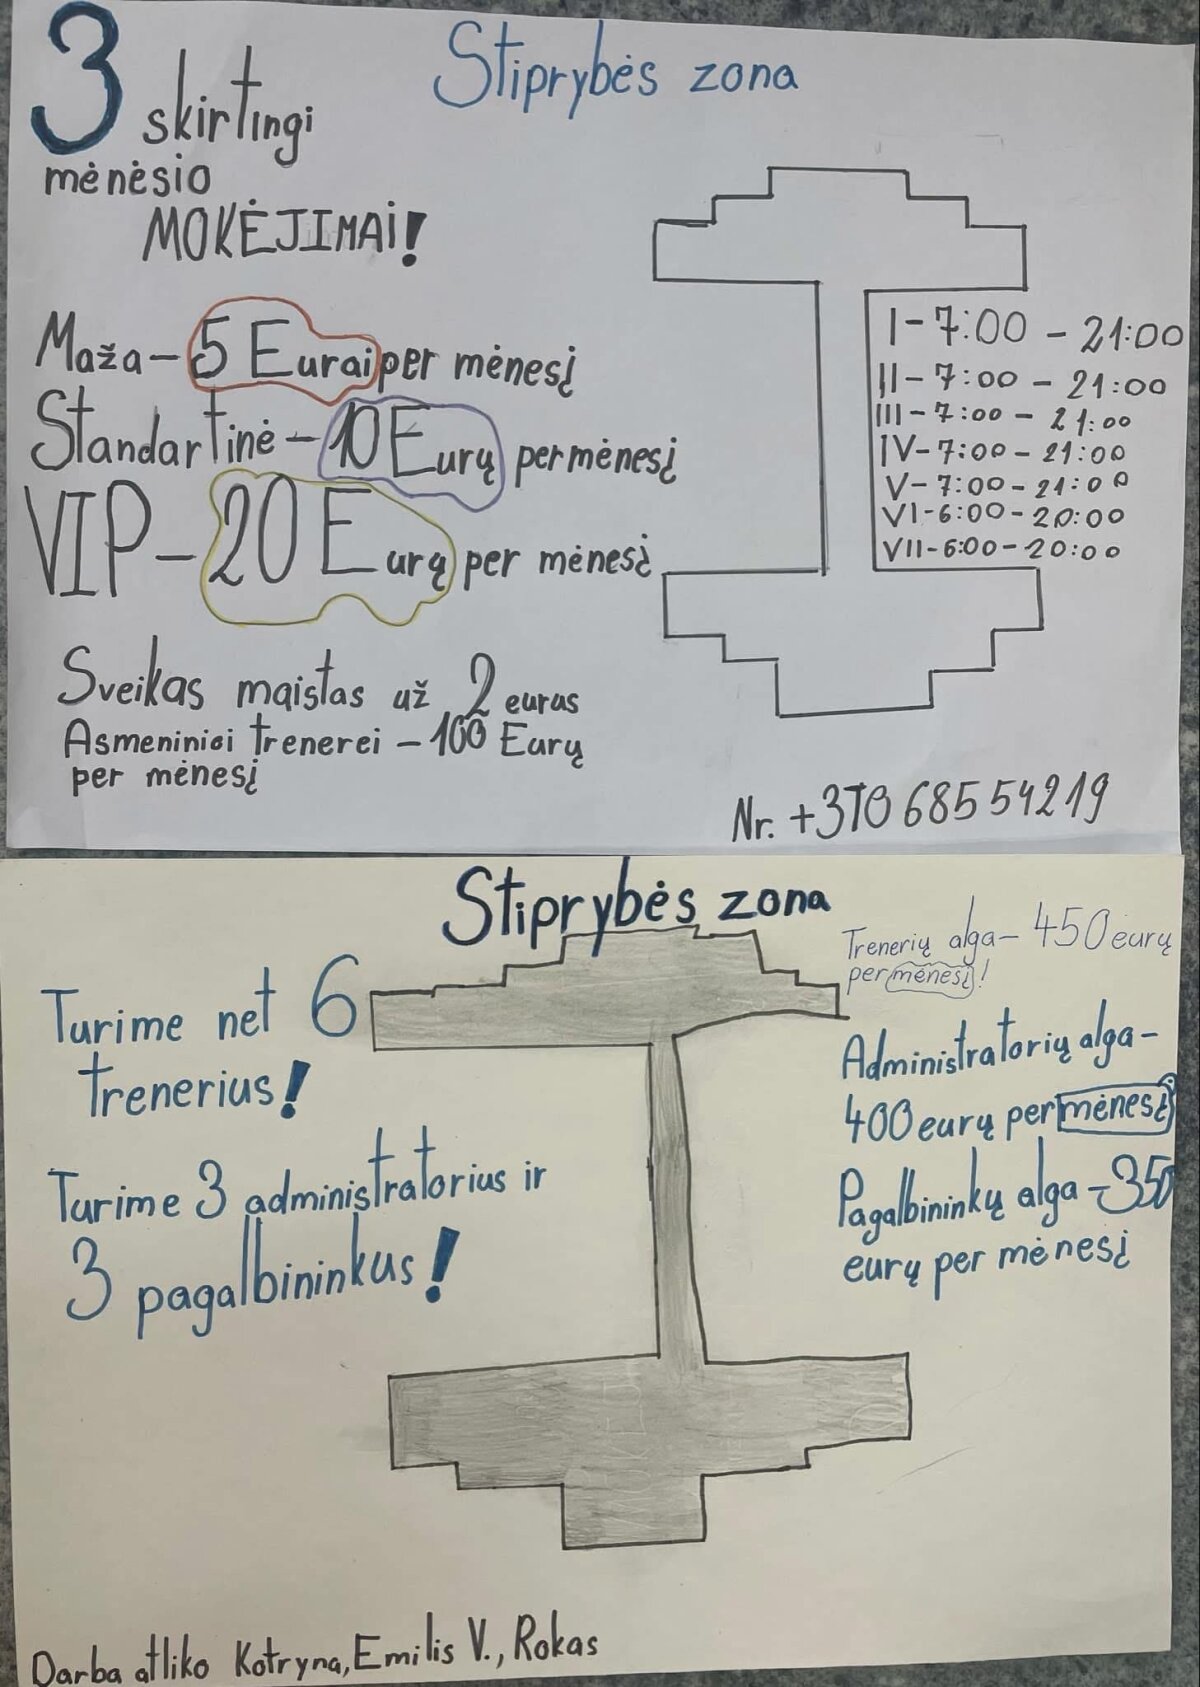 3 skirtingi
mėnėsio
MOKĖJIMAI!
Stiprybės zona
Maža – 5 Eurai per mėnesį
Standartinė – 10 Eurų per mėnesį
VIP – 20 Eurų per mėnesį
Sveikas maistas už 2 eurus
Asmeniniei trenerei – 100 Eurų
per mėnesį
I – 7:00 – 21:00
II – 7:00 – 21:00
III – 7:00 – 21:00
IV – 7:00 – 21:00
V – 7:00 – 21:00
VI – 6:00 – 20:00
VII – 6:00 – 20:00
Nr. +370 68554219
Stiprybės zona
Turime net 6
trenerius!
Turime 3 administratorius ir
3 pagalbininkus!
Trenerių alga – 450 eurų
per mėnesį!
Administratorių alga –
400 eurų per mėnesį
Pagalbininkų alga – 350
eurų per mėnesį
Darba atliko Kotryna, Emilis V., Rokas